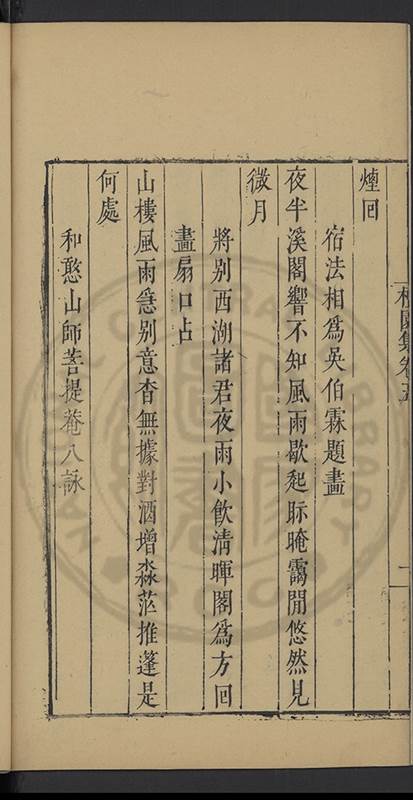 煙回
宿法相爲吳伯霖題畫
夜半溪閣響不知風雨歇起眎晻靄閒悠然見
微月
將别西湖諸君夜雨小飮清暉閣爲方回
畫扇口占
山樓風雨急别意杳無據對酒增淼茫推蓬是
何處
和憨山師菩提菴八詠